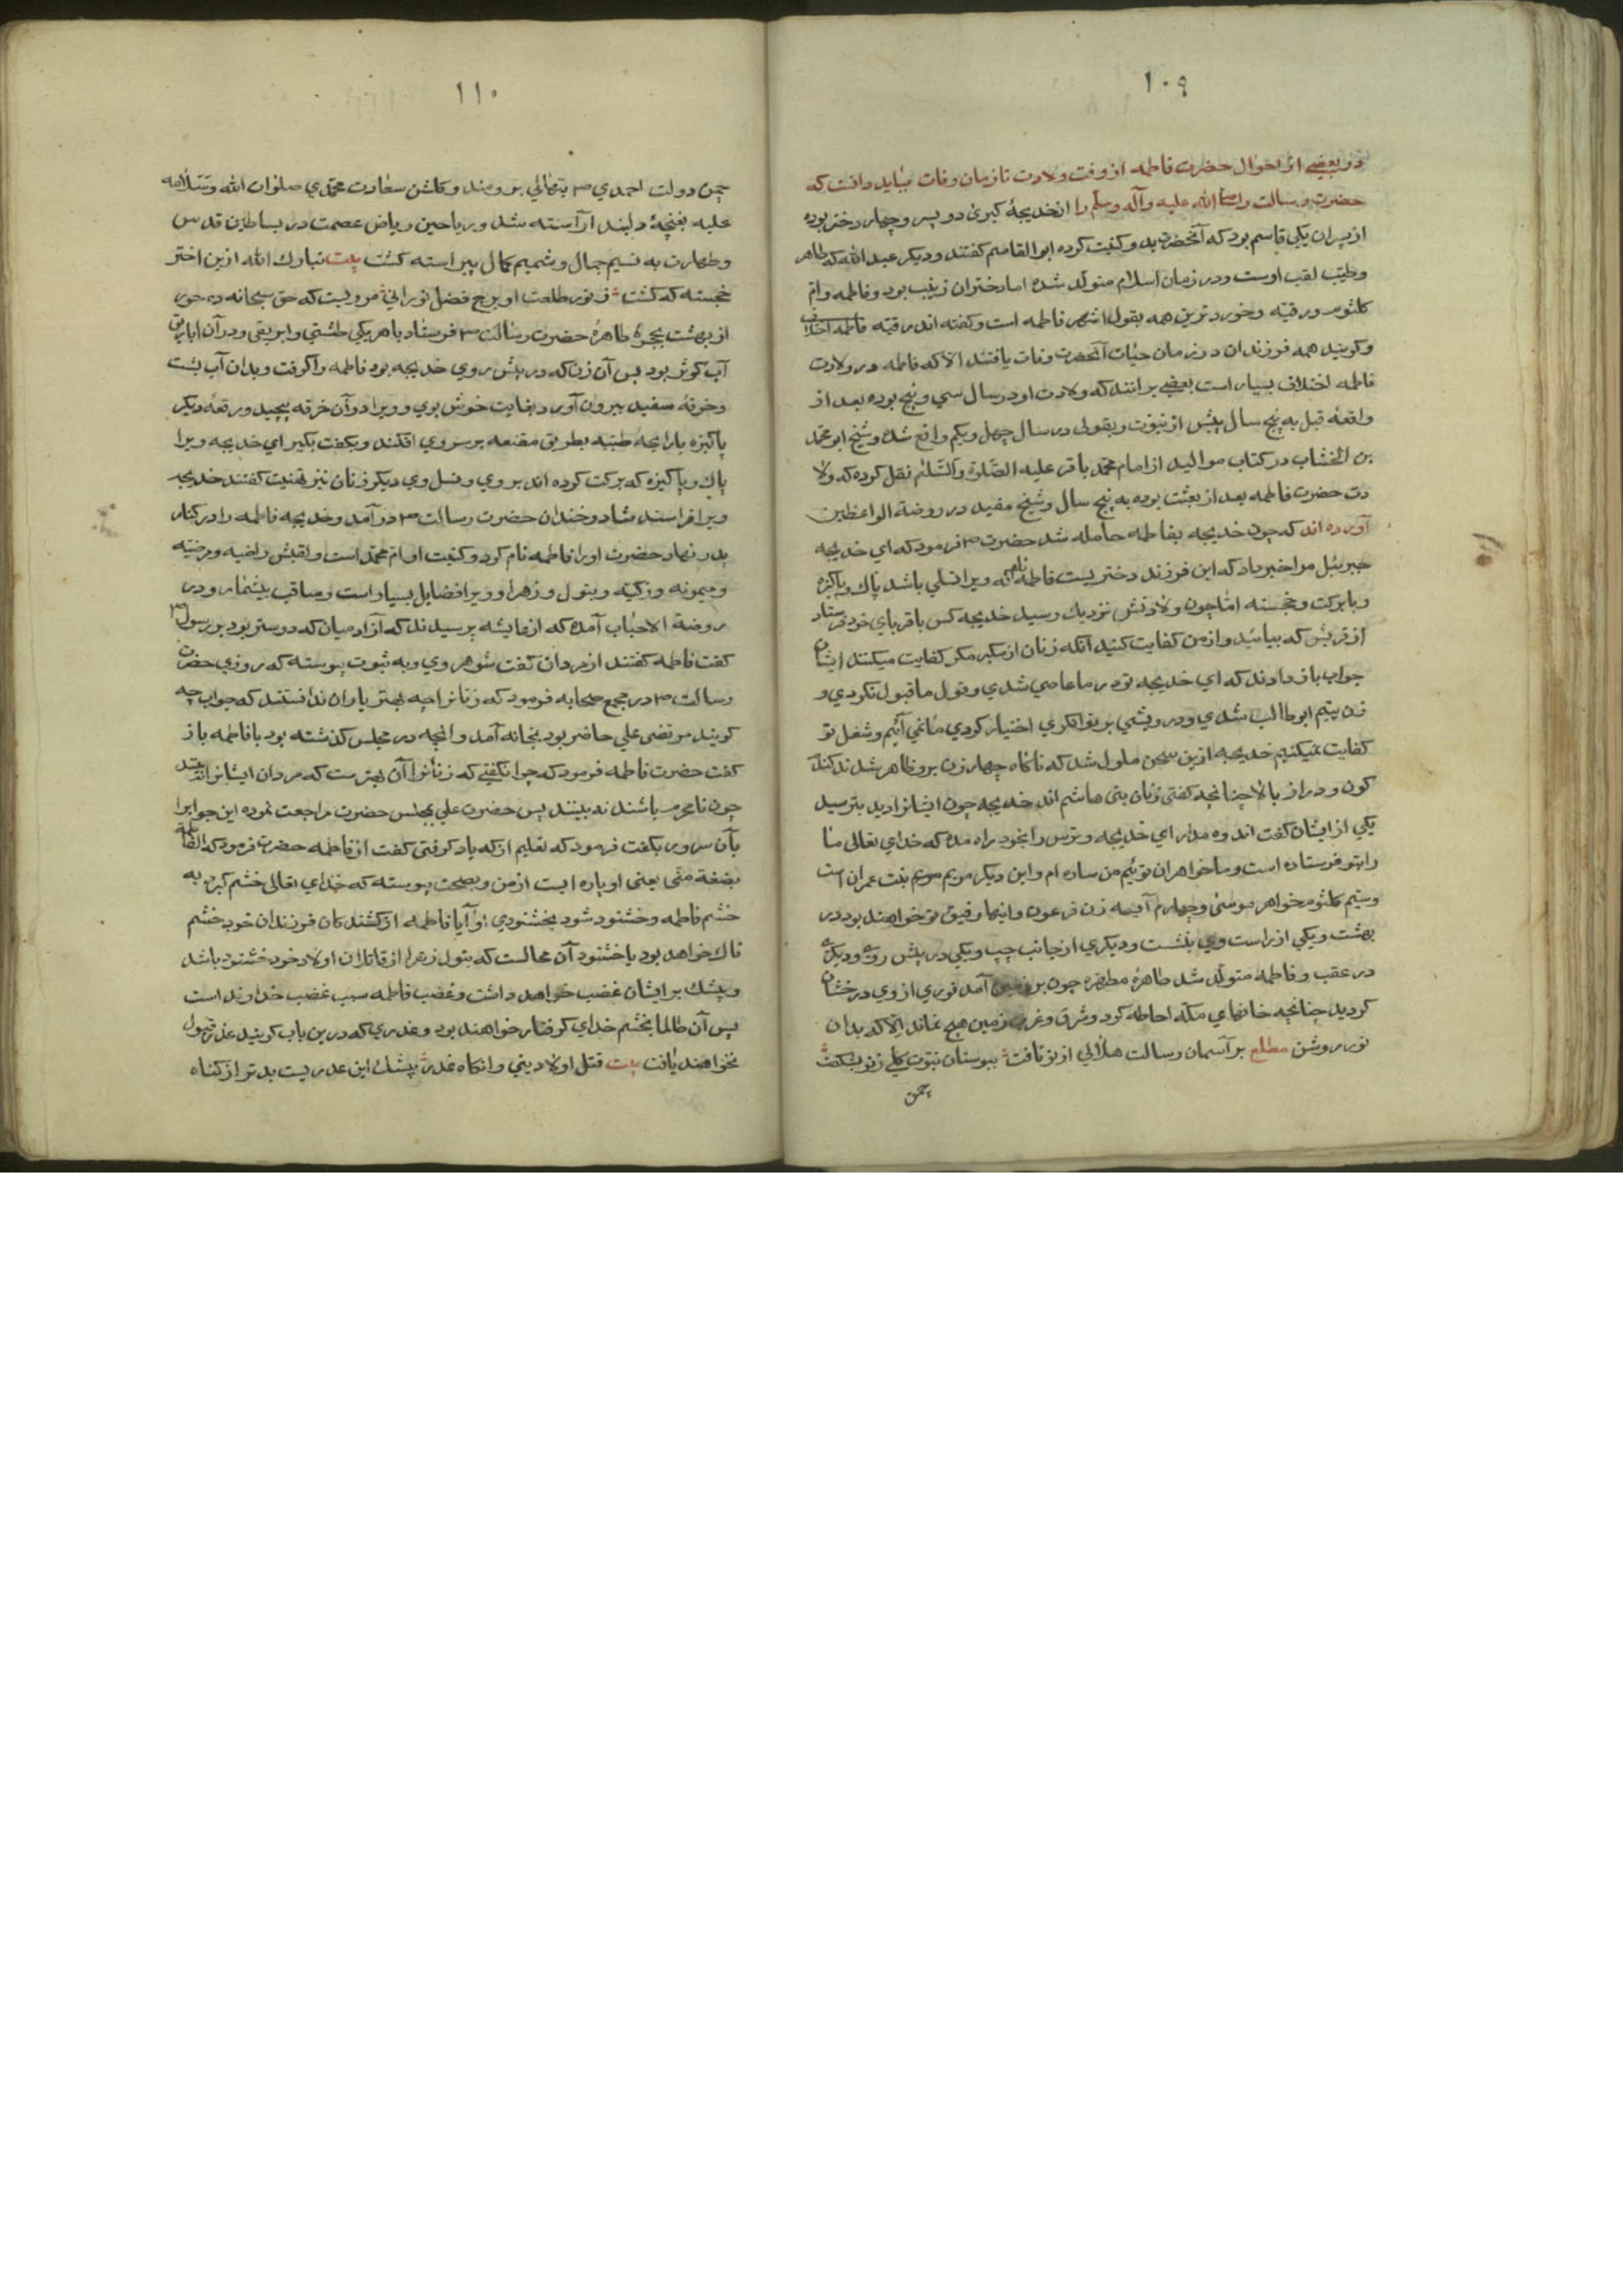 ١٠٩
در بعضی از احوال حضرت فاطمه از وقت ولادت تا زمان وفات بباید دانست که
حضرت رسالت را صلی الله علیه وآله وسلم را از خدیجهٔ کبری دو پسر و چهار دختر بوده
از پسران یکی قاسم بود که آنحضرت بدو کنیت کرده ابو القاسم کفتند و دیکر عبد الله که طاهر
وطیب لقب اوست و در زمان اسلام متولد شده اما دختران زینب بود و فاطمه وام
کلثوم ورقیه وخوردترین همه بقول اشهر فاطمه است وکفته اند رقیه
وکویند همه فرزندان در زمان حیات آنحضرت وفات یافتند الا که فاطمه در ولادت
فاطمه اختلاف بسیار است بعضی برانند که ولادت او در سال سی و پنج بوده بعد از
واقعهٔ قبل به پنج سال پیش از نبوت وبقولی در سال چهل ویکم واقع شده وشیخ ابو محمد
بن الخشاب در کتاب موالید از امام محمد باقر علیه الصلوة والسلم نقل کرده که ولا
دت حضرت فاطمه بعد از بعثت بوده به پنج سال وشیخ مفید در روضة الواعظین
آورده اند که چون خدیجه بفاطمه حامله شد حضرت ص فرمود که ای خدیجه
جبرئیل مرا خبر داد که این فرزند دختریست فاطمه نام که ویرا نسلی باشد پاک وپاکیزه
وبابرکت وخجسته اما چون ولادتش نزدیک رسید خدیجه کس باقربای خود فرستاد
از قریش که بیائید واز من کفایت کنید آنکه زنان از مکر کفایت میکنند ایشان
جواب باز دادند که ای خدیجه تو در ما عاصی شدی وقول ما قبول نکردی و
زن یتیم ابوطالب شدی ودرویشی بر توانکری اختیار کردی ما نمی آئیم وشغل تو
کفایت نمیکنیم خدیجه ازین سخن ملول شد که ناکاه چهار زن برو ظاهر شدند کندم
کون ودراز بالا چنانچه کفتی زنان بنی هاشم اند خدیجه چون ایشانرا دید بترسید
یکی از ایشان کفت اندوه مدار ای خدیجه وترس را بخود راه مده که خدای تعالی ما
را بتو فرستاده است وما خواهران توئیم من ساره ام واین دیکر مریم بنت عمران است
وسیم کلثوم خواهر موسی وچهارم آسیه زن فرعون واینها رفیق تو خواهند بود در
بهشت ویکی از راست وی بنشست ودیکری از جانب چپ ویکی در پیش روی ودیکری
در عقب وفاطمه متولد شد طاهرهٔ مطهره چون بر زمین آمد نوری از وی درخشان
کردید چنانچه خانهای مکه احاطه کرد وشرق وغرب زمین هیچ نماند الا که بدان
نور روشن مطلع بر آسمان رسالت هلالی از نو تافت ببوستان نبوت کلی ز نو بشکفت
چمن
١١٠
چمن دولت احمدی ص بنهالی برومند وکلشن سعادت محمدی صلوات الله وسلامه
علیه بغنچهٔ دلبند آراسته شد وریاحین ریاض عصمت در بساطین قدس
وطهارت به نسیم جمال وشمیم کمال پیراسته کشت بیت تبارک الله ازین اختر
خجسته که کشت ز نور طلعت او برج فضل نورانی مرویست که حق سبحانه ده حور
از بهشت بحجرهٔ طاهرهٔ حضرت رسالت ص فرستاد با هر یکی طشتی وابریقی ودر آن اباریق
آب کوثر بود پس آن زن که در پیش روی خدیجه بود فاطمه را کرفت وبدان آب بشست
وخرقهٔ سفید بیرون آورد بغایت خوش بوی وویرا در آن خرقه پیچید ورقعهٔ دیکر
پاکیزه بارایحهٔ طیبه بطریق مقنعه بر سر وی افکند وبکفت بکیر ای خدیجه ویرا
پاک وپاکیزه که برکت کرده اند بر وی ونسل وی دیکر زنان نیز تهنیت کفتند خدیجه
ویرا فراستند شاد وخندان حضرت رسالت ص در آمد وخدیجه فاطمه را در کنار
پدر نهاد حضرت اورا فاطمه نام کرد وکنیت او ام محمد است والقبش راضیه ومرضیه
ومیمونه وزکیه وبتول وزهرا وویرا فضایل بسیار است ومناقب بیشمار ودر
روضة الاحباب آمده که از عایشه پرسیدند که از آدمیان که دوستر بود بر رسول ص
کفت فاطمه کفتند از مردان کفت شوهر وی وبه ثبوت پیوسته که روزی حضرت
رسالت ص در مجمع صحابه فرمود که زنانرا چه بهتر یاران ندانستند که جواب چه
کویند مرتضی علی حاضر بود بخانه آمد وانچه در مجلس کذشته بود با فاطمه باز
کفت حضرت فاطمه فرمود که چرا نکفتی که زنانرا آن بهتر ست که مردان ایشانرا نه بینند
چون نامحرم باشند نه بینند پس حضرت علی بمجلس حضرت مراجعت نموده این جوابرا
بآن سرور بکفت فرمود که تعلیم از که یاد کرفتی کفت از فاطمه حضرت فرمود که الفاطمة
بضعة منی یعنی او پاره ایست از من وبصحت پیوسته که خدای تعالی خشم کیرد به
خشم فاطمه وخشنود شود بخشنودی او آیا فاطمه از کشندکان فرزندان خود خشم
ناک خواهد بود یا خشنود آن محالست که بتول زهرا از قاتلان اولاد خود خشنود باشد
وبیشک بر ایشان غضب خواهد داشت وغضب فاطمه سبب غضب خداوند است
پس آن ظالما بخشم خدای کرفتار خواهند بود وعذری که در ین باب کویند عذر قبول
نخواهند یافت بیت قتل اولاد بنی وانکاه عذر بیشک این عذریست بدتر از کناه